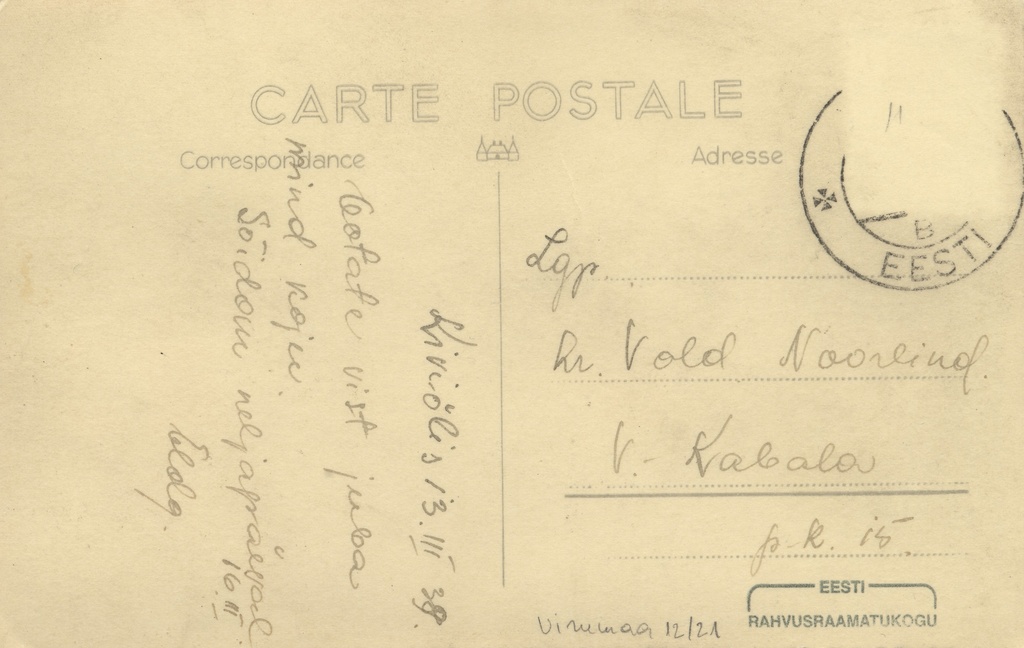 CARTE POSTALE
Correspondance
Adresse
Kiviõlis 13.III 38.
Ootate vist juba
mind koju.
Sõidan neljapäeval
16.III.
Lgp.
hr. Vold Noorlind.
V.-Kabala
p.k. 15.
B
EESTI
Virumaa 12/21
EESTI
RAHVUSRAAMATUKOGU